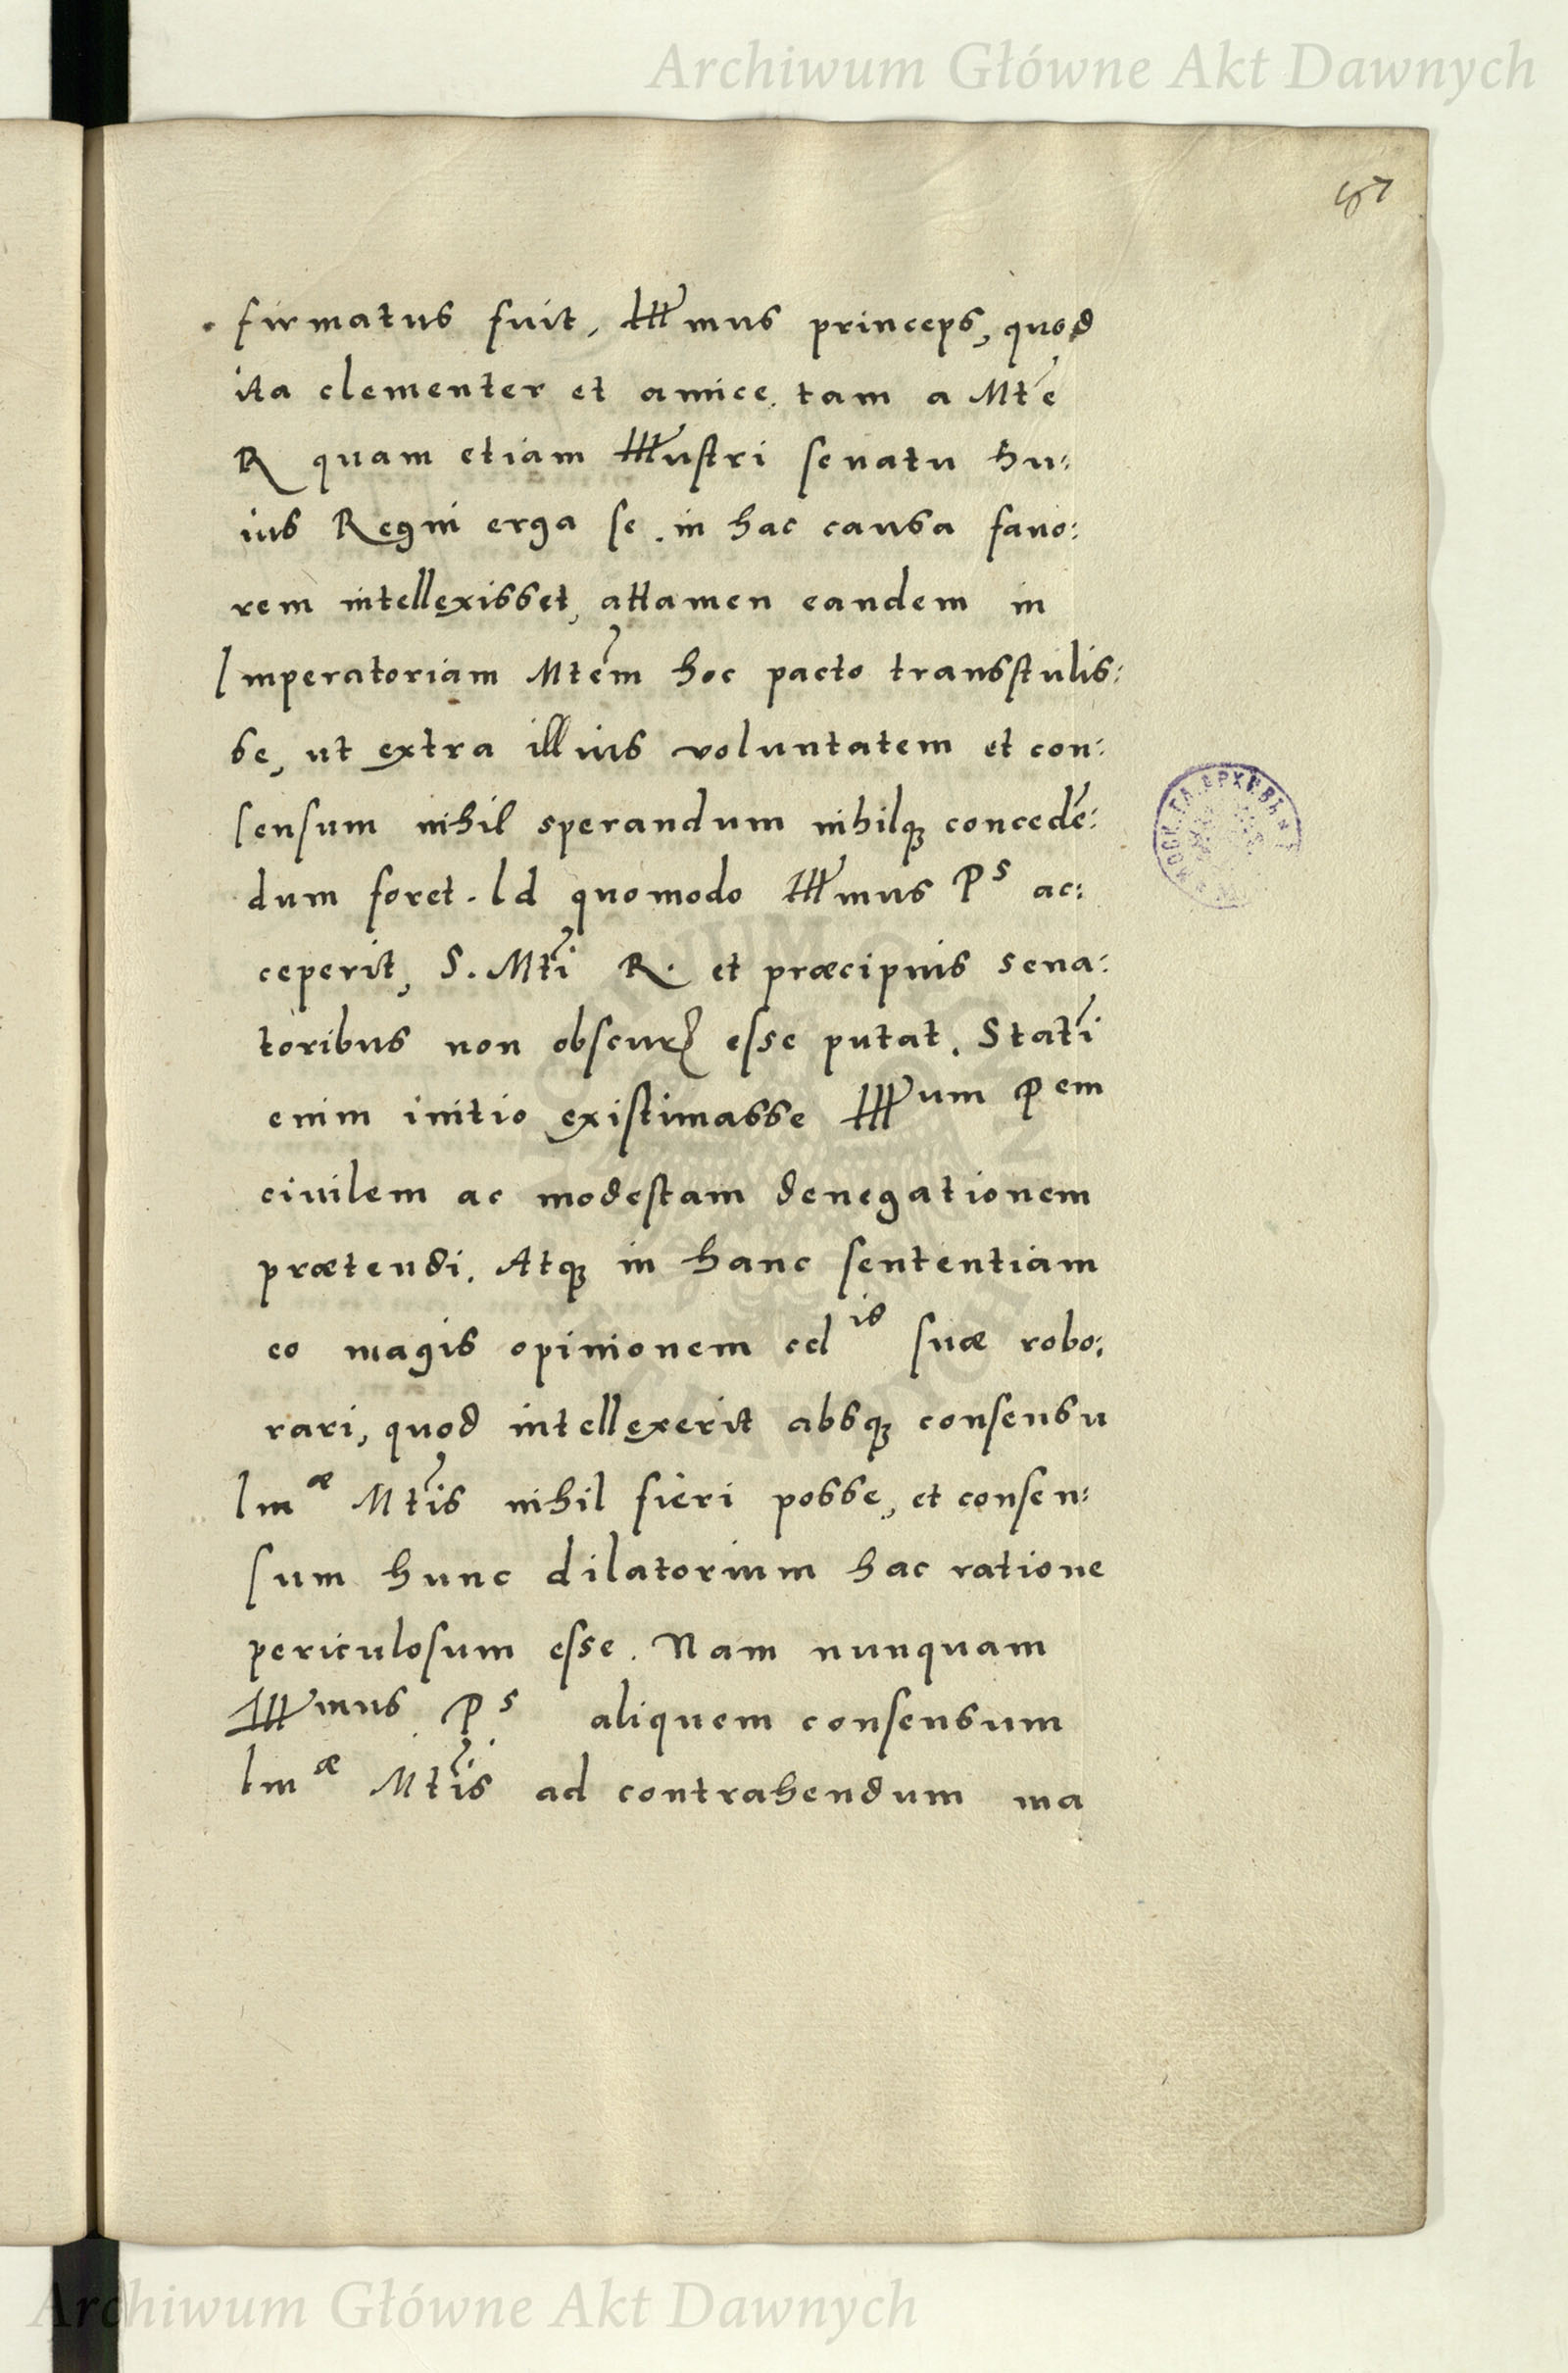 Archiwum Główne Akt Dawnych
firmatus fuit, Illmus princeps, quod
ita clementer et amice tam a Mte
R quam etiam Illustri senatu hu:
ius Regni erga se in hac causa fauo:
rem intellexisset, attamen eandem in
Imperatoriam Mtem hoc pacto transstulis:
se, ut extra illius voluntatem et con:
sensum nihil sperandum nihilq3 concedē:
dum foret. Id quomodo Illmus Ps ac:
ceperit, S. Mti R. et præcipuis sena:
toribus non obscur esse putat. Stati
enim initio existimasse Illum Pem
ciuilem ac modestam denegationem
prætendi. Atq3 in hanc sententiam
eo magis opinionem cel is suæ robo:
rari, quod intellexerit absq3 consensu
Imæ Mtis nihil fieri posse, et consen:
sum hunc dilatorium hac ratione
periculosum esse. Nam nunquam
Illmus Ps aliquem consensum
Imæ Mtis ad contrahendum ma
Archiwum Główne Akt Dawnych